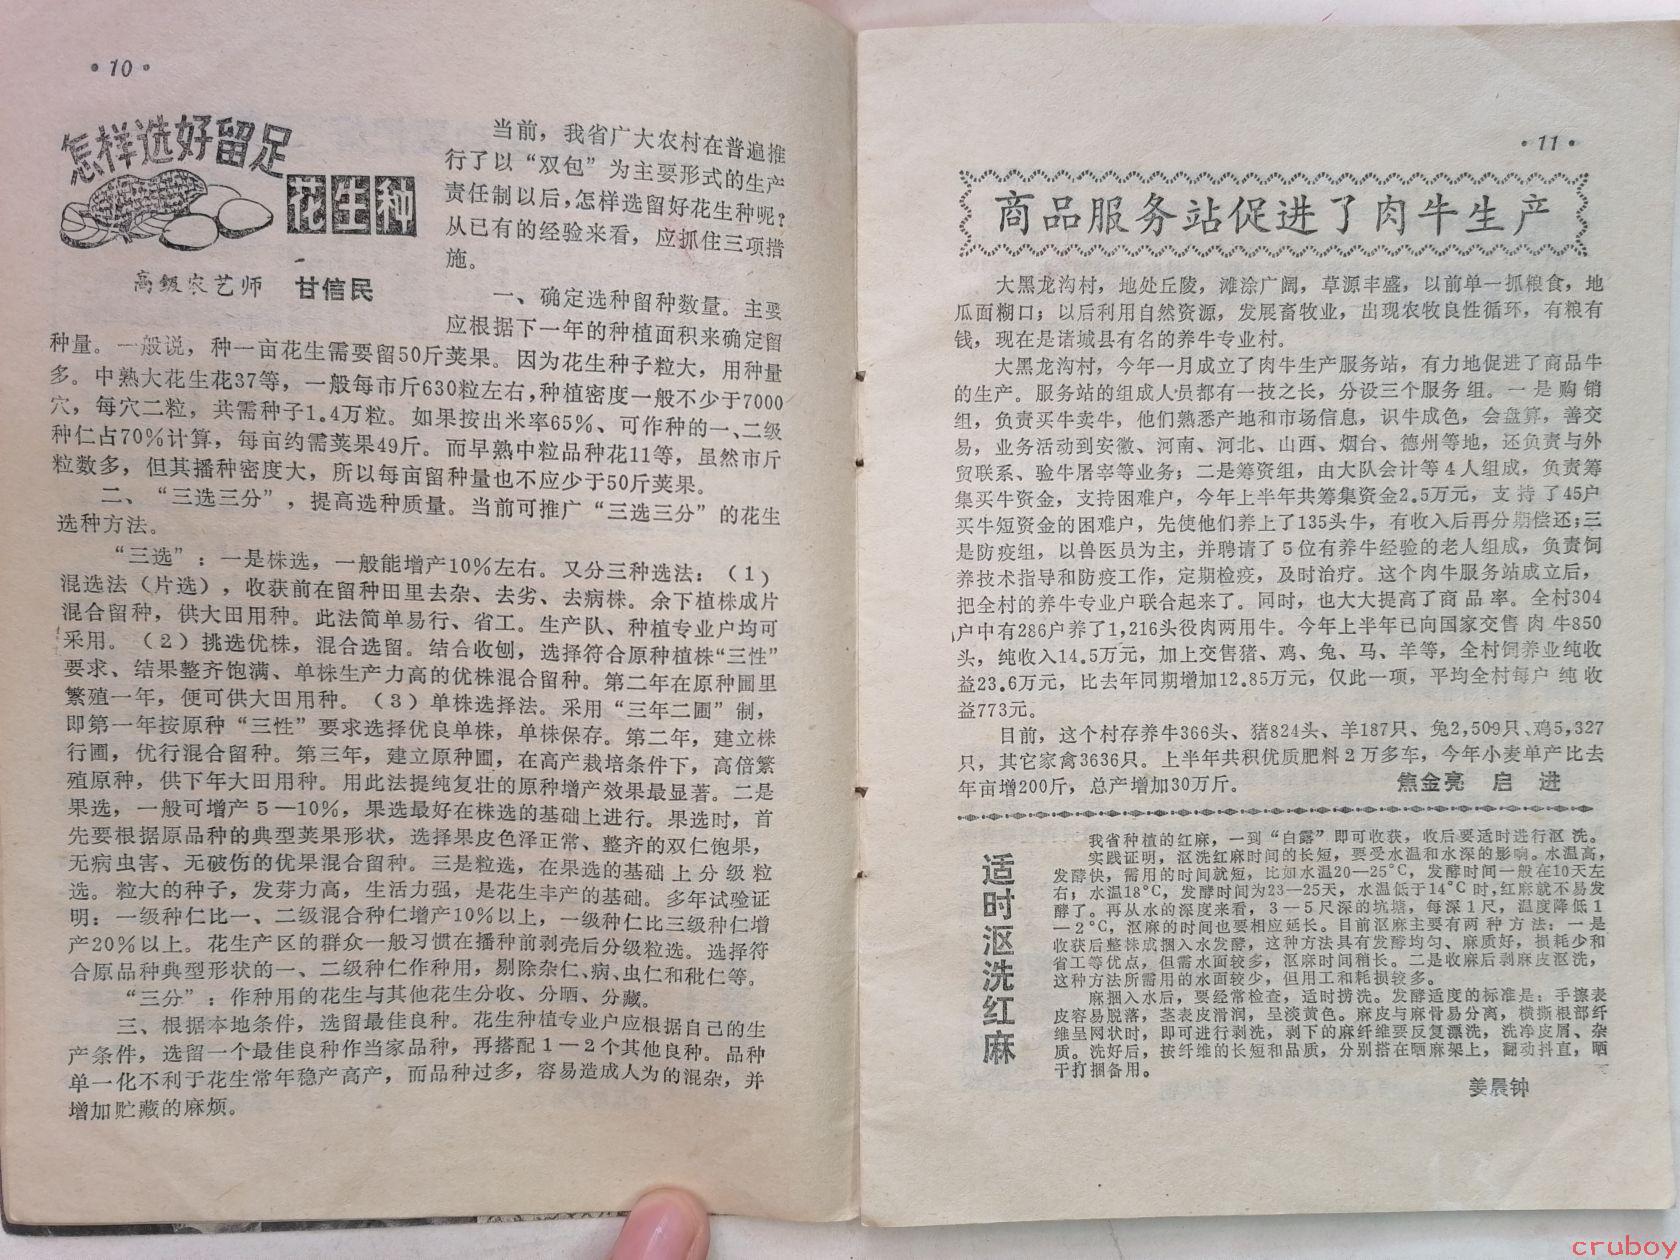 ·10·
怎样选好留足
花生种
高级农艺师 甘信民
当前，我省广大农村在普遍推
行了以“双包”为主要形式的生产
责任制以后，怎样选留好花生种呢？
从已有的经验来看，应抓住三项措
施。
一、确定选种留种数量。主要
应根据下一年的种植面积来确定留
种量。一般说，种一亩花生需要留50斤荚果。因为花生种子粒大，用种量
多。中熟大花生花37等，一般每市斤630粒左右，种植密度一般不少于7000
穴，每穴二粒，共需种子1.4万粒。如果按出米率65％、可作种的一、二级
种仁占70％计算，每亩约需荚果49斤。而早熟中粒品种花11等，虽然市斤
粒数多，但其播种密度大，所以每亩留种量也不应少于50斤荚果。
二、“三选三分”，提高选种质量。当前可推广“三选三分”的花生
选种方法。
“三选”：一是株选，一般能增产10％左右。又分三种选法：（1）
混选法（片选），收获前在留种田里去杂、去劣、去病株。余下植株成片
混合留种，供大田用种。此法简单易行、省工。生产队、种植专业户均可
采用。（2）挑选优株，混合选留。结合收刨，选择符合原种植株“三性”
要求、结果整齐饱满、单株生产力高的优株混合留种。第二年在原种圃里
繁殖一年，便可供大田用种。（3）单株选择法。采用“三年二圃”制，
即第一年按原种“三性”要求选择优良单株，单株保存。第二年，建立株
行圃，优行混合留种。第三年，建立原种圃，在高产栽培条件下，高倍繁
殖原种，供下年大田用种。用此法提纯复壮的原种增产效果最显著。二是
果选，一般可增产5—10％，果选最好在株选的基础上进行。果选时，首
先要根据原品种的典型荚果形状，选择果皮色泽正常、整齐的双仁饱果，
无病虫害、无破伤的优果混合留种。三是粒选，在果选的基础上分级粒
选。粒大的种子，发芽力高，生活力强，是花生丰产的基础。多年试验证
明：一级种仁比一、二级混合种仁增产10％以上，一级种仁比三级种仁增
产20％以上。花生产区的群众一般习惯在播种前剥壳后分级粒选。选择符
合原品种典型形状的一、二级种仁作种用，剔除杂仁、病、虫仁和秕仁等。
“三分”：作种用的花生与其他花生分收、分晒、分藏。
三、根据本地条件，选留最佳良种。花生种植专业户应根据自己的生
产条件，选留一个最佳良种作当家品种，再搭配1—2个其他良种。品种
单一化不利于花生常年稳产高产，而品种过多，容易造成人为的混杂，并
增加贮藏的麻烦。
·11·
商品服务站促进了肉牛生产
大黑龙沟村，地处丘陵，滩涂广阔，草源丰盛，以前单一抓粮食，地
瓜面糊口；以后利用自然资源，发展畜牧业，出现农牧良性循环，有粮有
钱，现在是诸城县有名的养牛专业村。
大黑龙沟村，今年一月成立了肉牛生产服务站，有力地促进了商品牛
的生产。服务站的组成人员都有一技之长，分设三个服务组。一是购销
组，负责买牛卖牛，他们熟悉产地和市场信息，识牛成色，会盘算，善交
易，业务活动到安徽、河南、河北、山西、烟台、德州等地，还负责与外
贸联系、验牛屠宰等业务；二是筹资组，由大队会计等4人组成，负责筹
集买牛资金，支持困难户，今年上半年共筹集资金2.5万元，支持了45户
买牛短资金的困难户，先使他们养上了135头牛，有收入后再分期偿还；三
是防疫组，以兽医员为主，并聘请了5位有养牛经验的老人组成，负责饲
养技术指导和防疫工作，定期检疫，及时治疗。这个肉牛服务站成立后，
把全村的养牛专业户联合起来了。同时，也大大提高了商品率。全村304
户中有286户养了1,216头役肉两用牛。今年上半年已向国家交售肉牛850
头，纯收入14.5万元，加上交售猪、鸡、兔、马、羊等，全村饲养业纯收
益23.6万元，比去年同期增加12.85万元，仅此一项，平均全村每户纯收
益773元。
目前，这个村存养牛366头、猪824头、羊187只、兔2,509只、鸡5,327
只，其它家禽3636只。上半年共积优质肥料2万多车，今年小麦单产比去
年亩增200斤，总产增加30万斤。 焦金亮 启 进
适时沤洗红麻
我省种植的红麻，一到“白露”即可收获，收后要适时进行沤洗。
实践证明，沤洗红麻时间的长短，要受水温和水深的影响。水温高，
发酵快，需用的时间就短，比如水温20—25℃，发酵时间一般在10天左
右；水温18℃，发酵时间为23—25天，水温低于14℃时，红麻就不易发
酵了。再从水的深度来看，3—5尺深的坑塘，每深1尺，温度降低1
—2℃，沤麻的时间也要相应延长。目前沤麻主要有两种方法：一是
收获后整株成捆入水发酵，这种方法具有发酵均匀、麻质好，损耗少和
省工等优点，但需水面较多，沤麻时间稍长。二是收麻后剥麻皮沤洗，
这种方法所需用的水面较少，但用工和耗损较多。
麻捆入水后，要经常检查，适时捞洗。发酵适度的标准是：手擦表
皮容易脱落，茎表皮滑润，呈淡黄色。麻皮与麻骨易分离，横撕根部纤
维呈网状时，即可进行剥洗，剥下的麻纤维要反复漂洗，洗净皮屑、杂
质。洗好后，按纤维的长短和品质，分别搭在晒麻架上，翻动抖直，晒
干打捆备用。
姜晨钟
cruboy